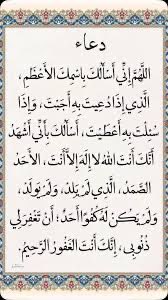 دعاء
اللَّهُمَّ إِنِّي أَسْأَلُكَ بِاسْمِكَ الْأَعْظَمِ،
الَّذِي إِذَا دُعِيتَ بِهِ أَجَبْتَ، وَإِذَا
سُئِلْتَ بِهِ أَعْطَيْتَ، أَسْأَلُكَ بِأَنِّي أَشْهَدُ
أَنَّكَ أَنْتَ اللهُ لَا إِلَهَ إِلَّا أَنْتَ، الْأَحَدُ
الصَّمَدُ، الَّذِي لَمْ يَلِدْ، وَلَمْ يُولَدْ،
وَلَمْ يَكُنْ لَهُ كُفُوًا أَحَدٌ؛ أَنْ تَغْفِرَ لِي
ذُنُوبِي، إِنَّكَ أَنْتَ الْغَفُورُ الرَّحِيمُ.